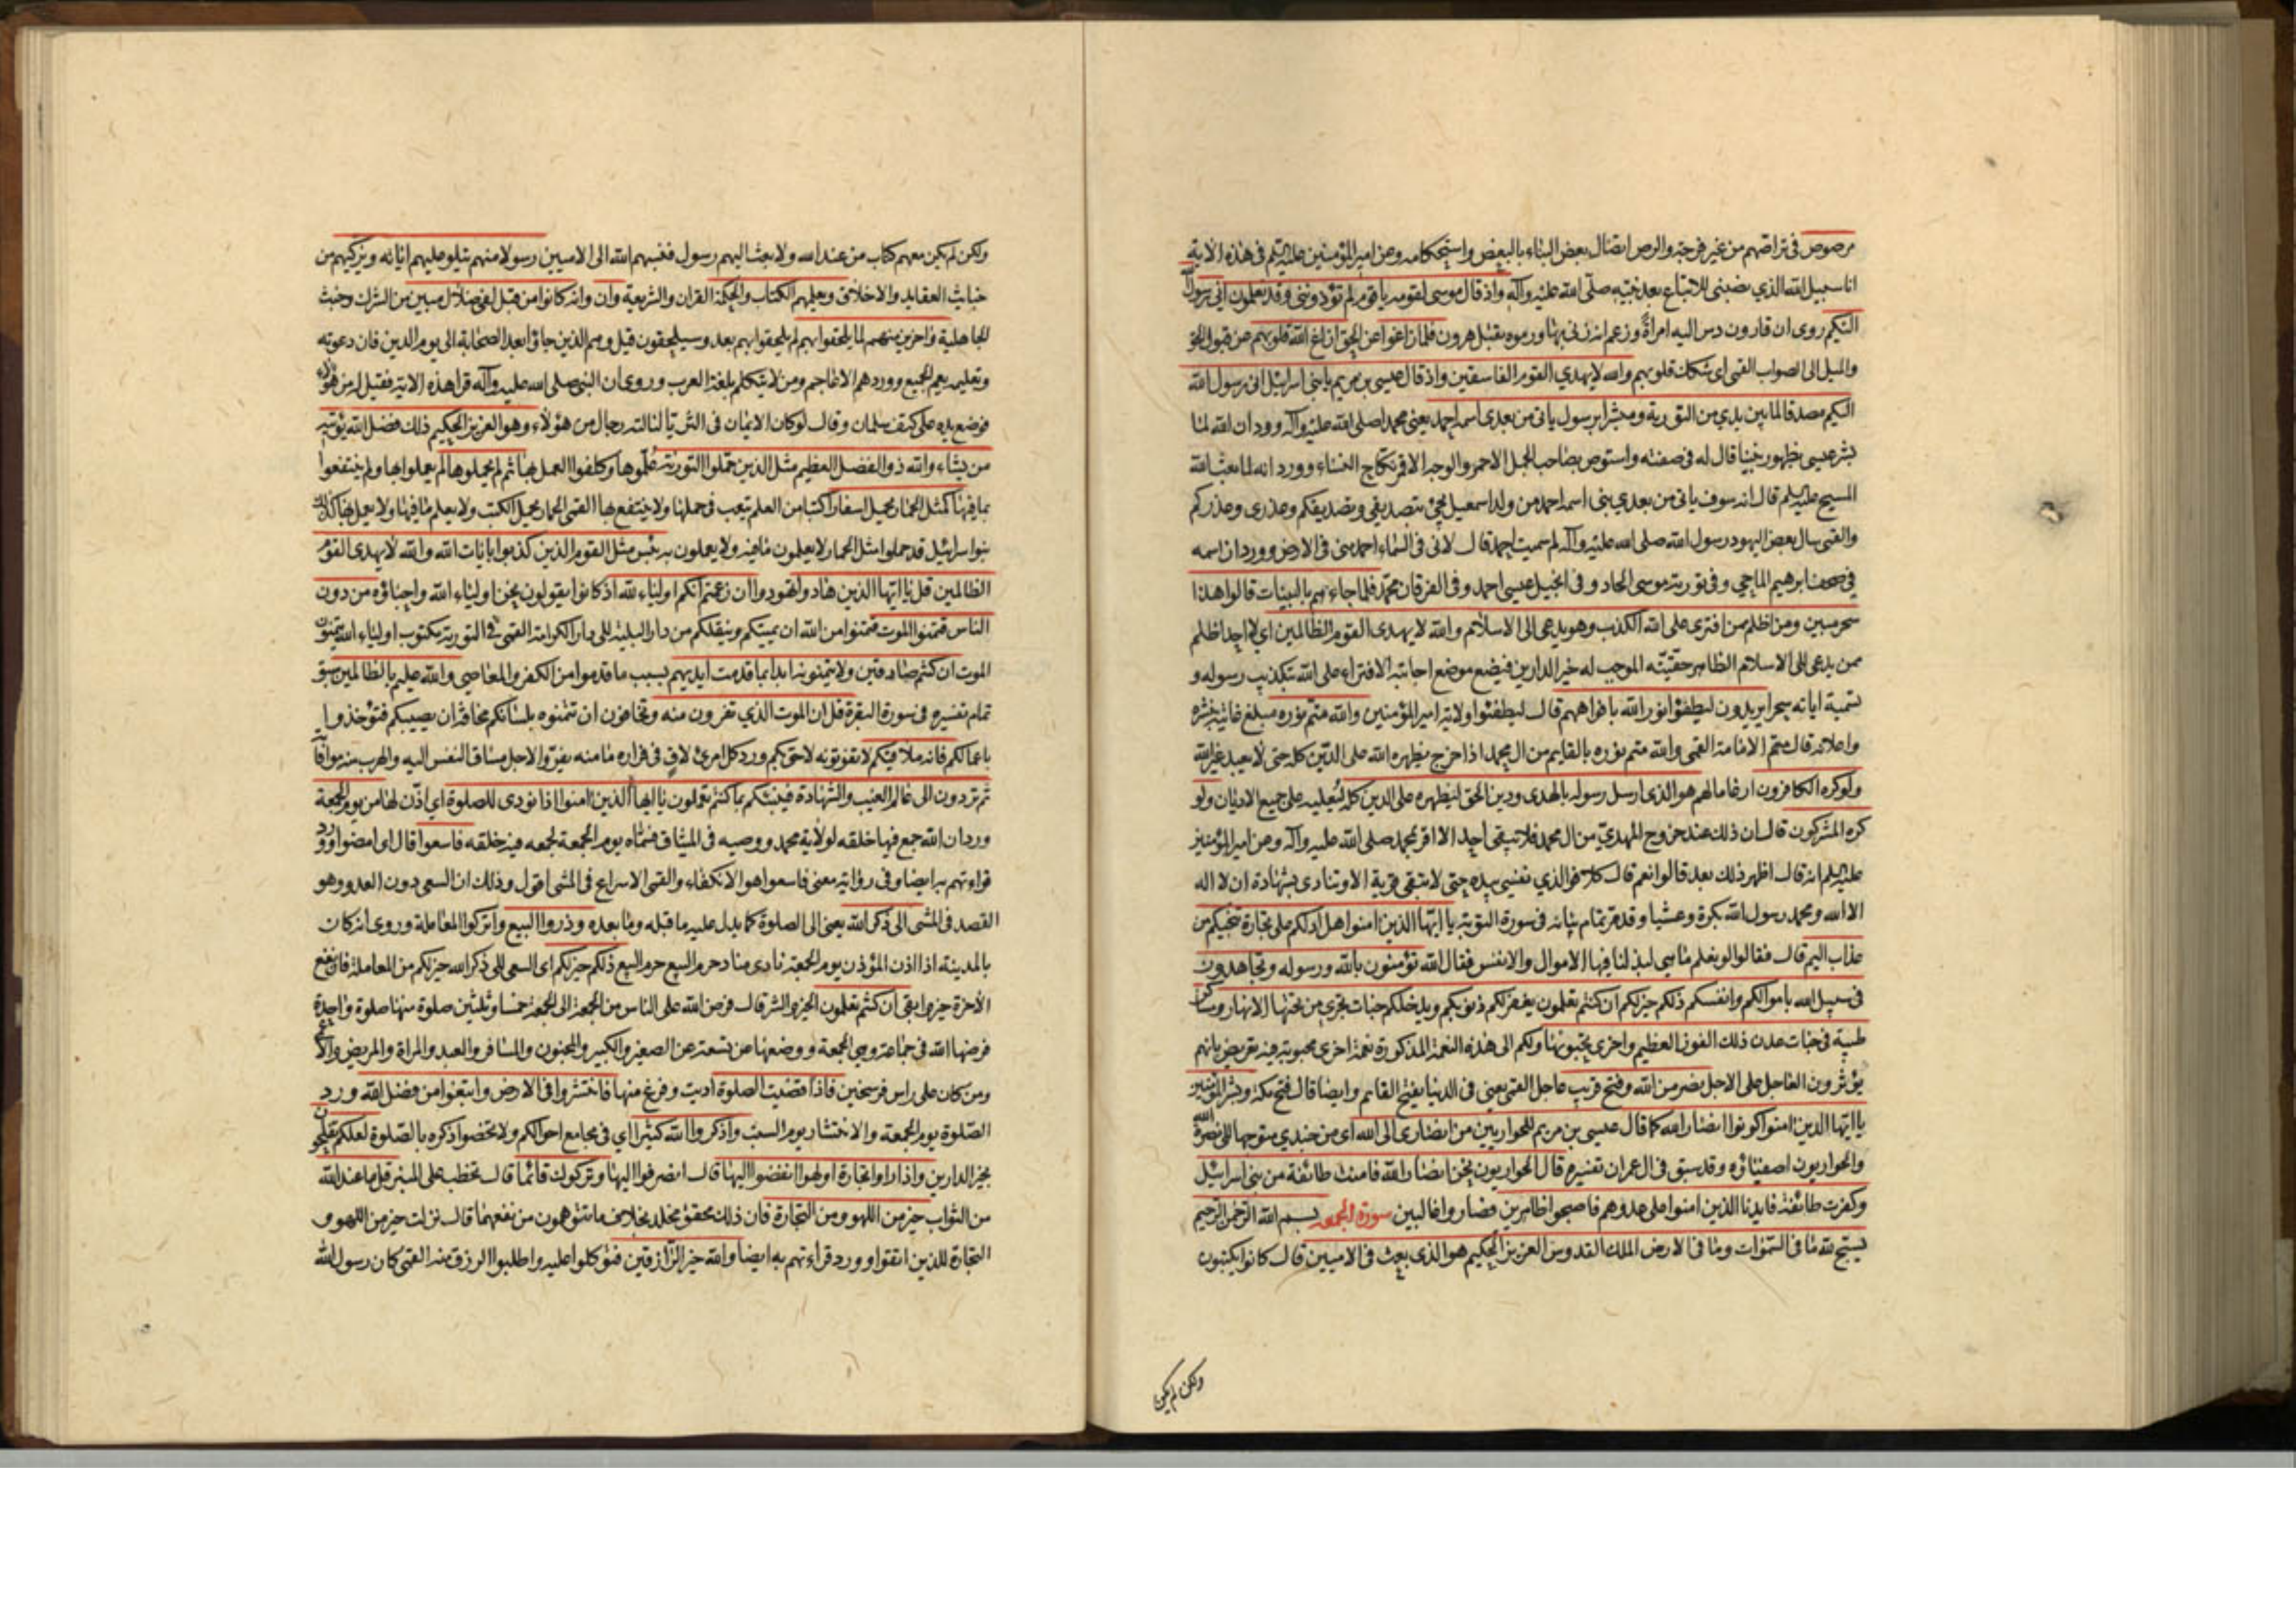 مرصوص في تراصهم من غير فرجة والرص اتصال بعض البناء بالبعض واستحكامه وعن امير المؤمنين عليه السلم في هذه الاية
انا سبيل الله الذي نصبني للاتباع بعد نبيه صلى الله عليه وآله واذ قال موسى لقومه يا قوم لم تؤذونني وقد تعلمون اني رسول الله
اليكم روى ان قارون دس اليه امرأة وزعم انه زنى بها ورموه بقتل هرون فلما زاغوا عن الحق ازاغ الله قلوبهم عن قبول الحق
والميل الى الصواب القمي اى شكك قلوبهم والله لا يهدي القوم الفاسقين واذ قال عيسى بن مريم يا بني اسرائيل اني رسول الله
اليكم مصدقا لما بين يدي من التورية ومبشرا برسول ياتي من بعدي اسمه احمد يعني محمدا صلى الله عليه وآله وورد ان الله لما
بشر عيسى بظهور نبينا قال له في صفته واستوص بصاحب الجمل الاحمر والوجه الاقمر نكاح النساء وورد انه لما بعث الله
المسيح عليه السلم قال انه سوف ياتي من بعدي نبي اسمه احمد من ولد اسمعيل يجيء بتصديقي وتصديقكم وعذري وعذركم
والقمي سال بعض اليهود رسول الله صلى الله عليه وآله لم سميت احمد قال لاني في السماء احمد مني في الارض وورد ان اسمه
في صحف ابرهيم الماحي وفي تورية موسى الحاد وفي انجيل عيسى احمد وفي الفرقان محمد فلما جاءهم بالبينات قالوا هذا
سحر مبين ومن اظلم ممن افترى على الله الكذب وهو يدعى الى الاسلام والله لا يهدي القوم الظالمين اي لا احد اظلم
ممن يدعى الى الاسلام الظاهر حقيته الموجب له خير الدارين فيضع موضع اجابته الافتراء على الله بتكذيب رسوله و
تسمية اياته سحرا يريدون ليطفؤا نور الله بافواههم قال ليطفئوا ولاية امير المؤمنين والله متم نوره مبلغ غايته بنشره
واعلائه قال متم الامامة القمي والله متم نوره بالقايم من ال محمد اذا خرج يظهره الله على الدين كله حتى لا يعبد غير الله
ولو كره الكافرون ارغاما لهم هو الذى ارسل رسوله بالهدى ودين الحق ليظهره على الدين كله ليغلبه على جميع الاديان ولو
كره المشركون قال ان ذلك عند خروج المهدي من ال محمد فلا يبقى احد الا اقر بمحمد صلى الله عليه وآله وعن امير المؤمنين
عليه السلم انه قال اظهر ذلك بعد قالوا نعم قال كلا فوالذي نفسي بيده حتى لا تبقى قرية الا وتنادى بشهادة ان لا اله
الا الله ومحمد رسول الله بكرة وعشيا وقد مر تمام بيانه في سورة التوبة يا ايها الذين امنوا هل ادلكم على تجارة تنجيكم من
عذاب اليم قال فقالوا لو نعلم ما هي لبذلنا فيها الاموال والانفس فقال الله تؤمنون بالله ورسوله وتجاهدون
في سبيل الله باموالكم وانفسكم ذلكم خير لكم ان كنتم تعلمون يغفر لكم ذنوبكم ويدخلكم جنات تجري من تحتها الانهار ومساكن
طيبة في جنات عدن ذلك الفوز العظيم واخرى تحبونها ولكم الى هذه النعمة المذكورة نعمة اخرى محبوبة فيه تعريض بانهم
يؤثرون العاجل على الاجل نصر من الله وفتح قريب عاجل القمي يعني في الدنيا بفتح القايم وايضا قال فتح مكة وبشر المؤمنين
يا ايها الذين امنوا كونوا انصار الله كما قال عيسى بن مريم للحواريين من انصارى الى الله اى من جندي متوجها الى نصرة الله
والحواريون اصفياؤه وقد سبق في ال عمران تفسيره قال الحواريون نحن انصار الله فامنت طائفة من بني اسرائيل
وكفرت طائفة فايدنا الذين امنوا على عدوهم فاصبحوا ظاهرين فصاروا غالبين سورة الجمعه بسم الله الرحمن الرحيم
يسبح لله ما في السموات وما في الارض الملك القدوس العزيز الحكيم هو الذي بعث في الاميين قال كانوا يكتبون
ولكن لم يكن
ولكن لم يكن معهم كتاب من عند الله ولا بعث اليهم رسول فنسبهم الله الى الاميين رسولا منهم يتلو عليهم اياته ويزكيهم من
خبائث العقايد والاخلاق ويعلمهم الكتاب والحكمة القران والشريعة وان وانه كانوا من قبل لفي ضلال مبين من الشرك وخبث
الجاهلية واخرين منهم لما يلحقوا بهم لم يلحقوا بهم بعد وسيلحقون قيل وهم الذين جاؤا بعد الصحابة الى يوم الدين فان دعوته
وتعليمه يعم الجميع وورد هم الاعاجم ومن لا يتكلم بلغة العرب وروي ان النبي صلى الله عليه وآله قرا هذه الاية فقيل له من هؤلاء
فوضع يده على كتف سلمان وقال لو كان الايمان في الثريا لنالته رجال من هؤلاء وهو العزيز الحكيم ذلك فضل الله يؤتيه
من يشاء والله ذو الفضل العظيم مثل الذين حملوا التورية علموها وكلفوا العمل بها ثم لم يحملوها لم يعملوا بها ولم ينتفعوا
بما فيها كمثل الحمار يحمل اسفارا كتبا من العلم يتعب في حملها ولا ينتفع بها القمي الحمار يحمل الكتب ولا يعلم ما فيها ولا يعمل بها كذلك
بنو اسرائيل قد حملوا مثل الحمار لا يعلمون ما فيه ولا يعملون به بئس مثل القوم الذين كذبوا بايات الله والله لا يهدى القوم
الظالمين قل يا ايها الذين هادوا تهودوا ان زعمتم انكم اولياء لله اذ كانوا يقولون نحن اولياء الله واحباؤه من دون
الناس فتمنوا الموت فتمنوا من الله ان يميتكم وينقلكم من دار البلية الى دار الكرامة القمي في التورية مكتوب اولياء الله يتمنون
الموت ان كنتم صادقين ولا يتمنونه ابدا بما قدمت ايديهم بسبب ما قدموا من الكفر والمعاصي والله عليم بالظالمين سبق
تمام تفسيره في سورة البقرة قل ان الموت الذي تفرون منه وتخافون ان تتمنوه بلسانكم مخافة ان يصيبكم فتؤخذوا
باعمالكم فانه ملاقيكم لا تفوتونه لاحق بكم ورد كل امرئ لاق في فراره ما منه يفر والاجل مساق النفس اليه والهرب منه موافاته
ثم تردون الى عالم الغيب والشهادة فينبئكم بما كنتم تعملون يا ايها الذين امنوا اذا نودى للصلوة اي اذن لها من يوم الجمعة
ورد ان الله جمع فيها خلقه لولاية محمد ووصيه في الميثاق فسماه يوم الجمعة لجمعه فيه خلقه فاسعوا قال اى امضوا وورد
قراءتهم به ايضا وفي رواية معنى فاسعوا هو الانكفاء والقمي الاسراع في المشي اقول وذلك ان السعي دون العدو وهو
القصد في المشي الى ذكر الله يعني الى الصلوة كما يدل عليه ما قبله وما بعده وذروا البيع واتركوا المعاملة وروي انه كان
بالمدينة اذا اذن المؤذن يوم الجمعة نادى مناد حرم البيع حرم البيع ذلكم خير لكم اى السعي الى ذكر الله خير لكم من المعاملة فان نفع
الاخرة خير وابقى ان كنتم تعلمون الخير والشر قال فرض الله على الناس من الجمعة الى الجمعة خمسا وثلثين صلوة منها صلوة واحدة
فرضها الله في جماعة وهي الجمعة ووضعها عن تسعة عن الصغير والكبير والمجنون والمسافر والعبد والمراة والمريض والاعمى
ومن كان على راس فرسخين فاذا قضيت الصلوة اديت وفرغ منها فانتشروا في الارض وابتغوا من فضل الله ورد
الصلوة يوم الجمعة والانتشار يوم السبت واذكروا الله كثيرا اي في مجامع احوالكم ولا تخصوا ذكره بالصلوة لعلكم تفلحون
بخير الدارين واذا راوا تجارة او لهوا انفضوا اليها قال انصرفوا اليها وتركوك قائما قال تخطب على المنبر قل ما عند الله
من الثواب خير من اللهو ومن التجارة فان ذلك محقق مخلد بخلاف ما تتوهمون من نفعهما قال نزلت خير من اللهو و
التجارة للذين اتقوا وورد قراءتهم به ايضا والله خير الرازقين فتوكلوا عليه واطلبوا الرزق منه القمي كان رسول الله